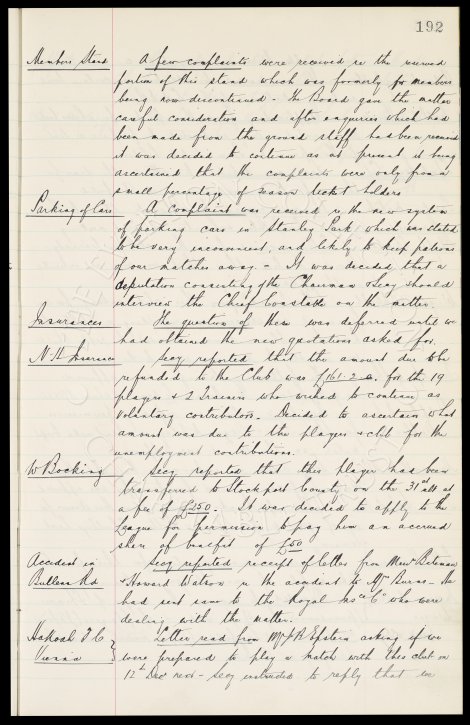 192
Members Stand A few complaints were received re the reserved
portion of this stand which was formerly for members
being now discontinued - The Board gave the matter
careful consideration and after enquiries which had
been made from the ground staff had been received
it was decided to continue as at present it being
ascertained that the complaints were only from a
small percentage of season ticket holders
Parking of Cars A complaint was received re the new system
of parking cars in Stanley Park which was stated
to be very inconvenient, and likely to keep patrons
of our matches away. - It was decided that a
deputation consisting of the Chairman & Secy should
interview the Chief Constable on the matter.
Insurances The question of these was deferred until we
had obtained the new quotations asked for.
N.H. Insurance Secy reported that the amount due to be
refunded to the Club was £161.2.0. for the 19
players & 2 Trainers who wished to continue as
voluntary contributors. Decided to ascertain what
amount was due to the players & club for the
unemployment contributions.
W Bocking Secy reported that this player had been
transferred to Stockport County on the 31st ult at
a fee of £250. It was decided to apply to the
League for permission to pay him an accrued
share of benefit of £50
Accident in Secy reported receipt of letter from Messrs Bateman
Bullens Rd & Howard Watson re the accident to Mrs Burns - He
had sent same to the Royal Insce Co who were
dealing with the matter.
Hakoah F C Letter read from Mr J R Epstein asking if we
Vienna were prepared to play a match with this club on
12th Decr next - Secy instructed to reply that we